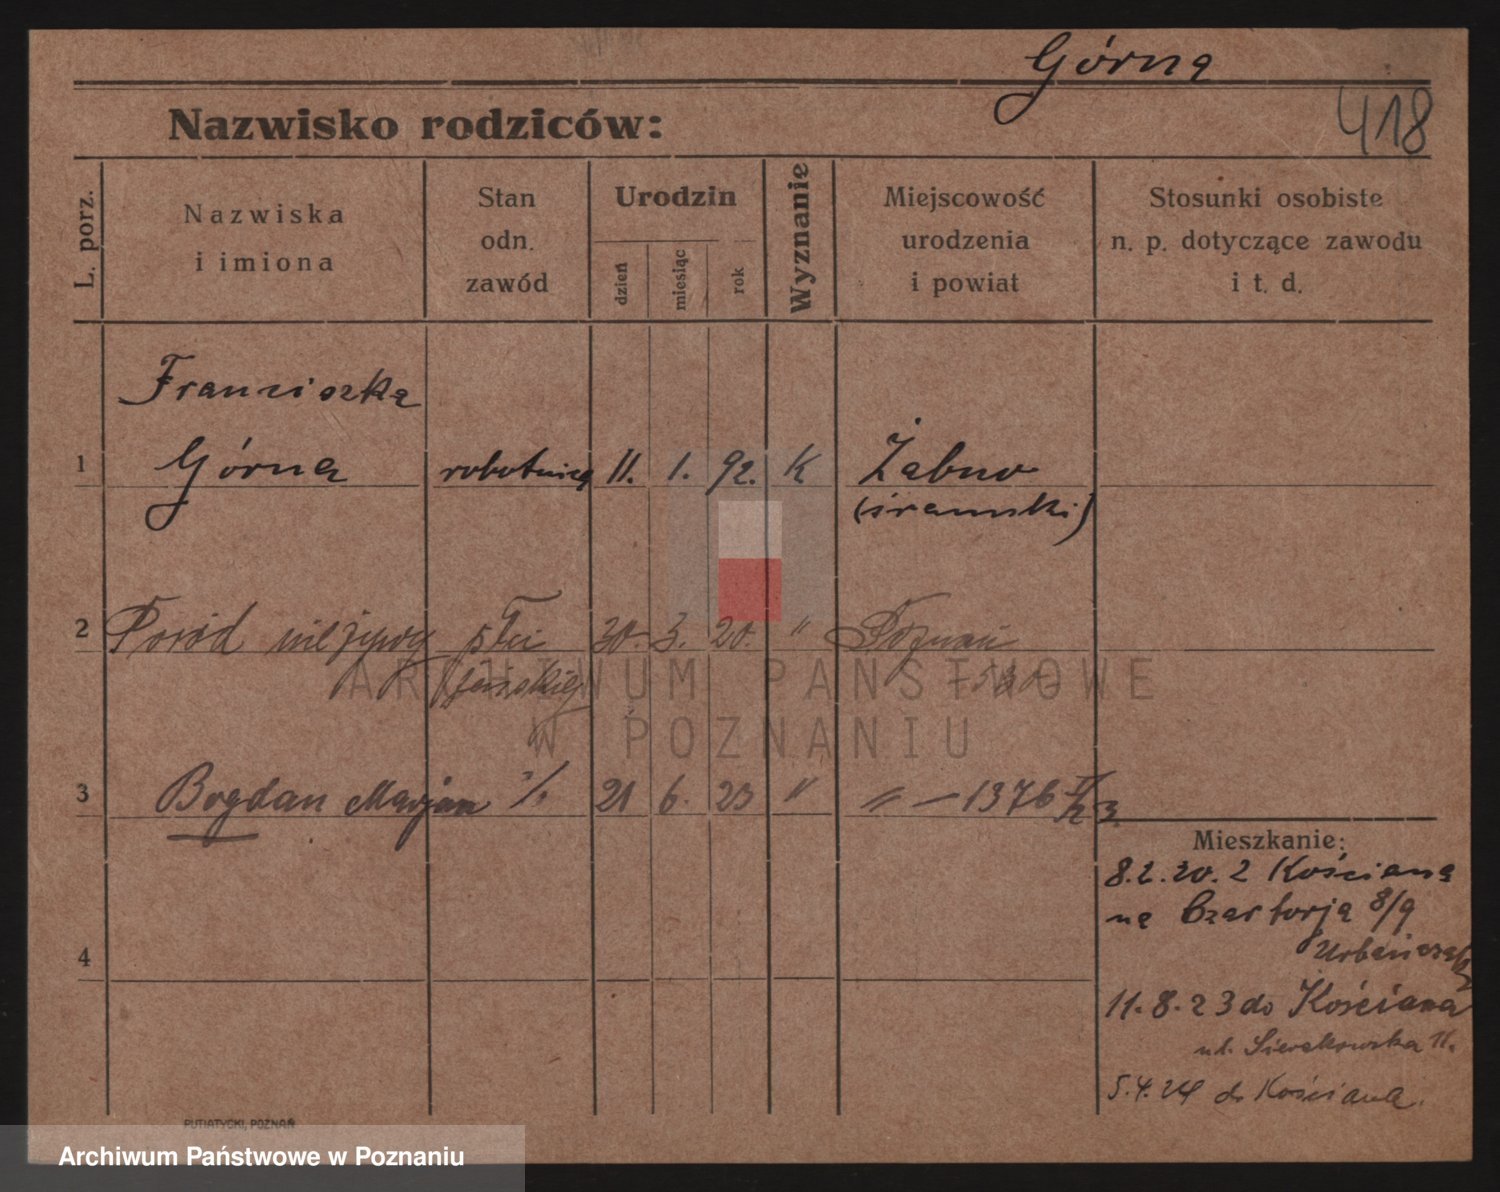 Górna
418
Nazwisko rodziców:
L. porz.
Nazwiska
i imiona
Stan
odn.
zawód
Urodzin
dzień
miesiąc
rok
Wyznanie
Miejscowość
urodzenia
i powiat
Stosunki osobiste
n. p. dotyczące zawodu
i t. d.
Franciszka
1 Górna robotnica 11. 1. 92. K Żabno
(śremski)
2 Poród nieżywy płci 30. 3. 20. " Poznań
żeńskiej
3 Bogdan Marjan 21 6. 23 " " — 1376
Mieszkanie:
8.2.20. z Kościana
na Czartorja 8/9
4
11.8.23 do Kościana
ul. Sierakowska 11.
5.4.24 do Kościana.
PUTIATYCKI, POZNAŃ
ARCHIWUM PAŃSTWOWE
W POZNANIU
Archiwum Państwowe w Poznaniu